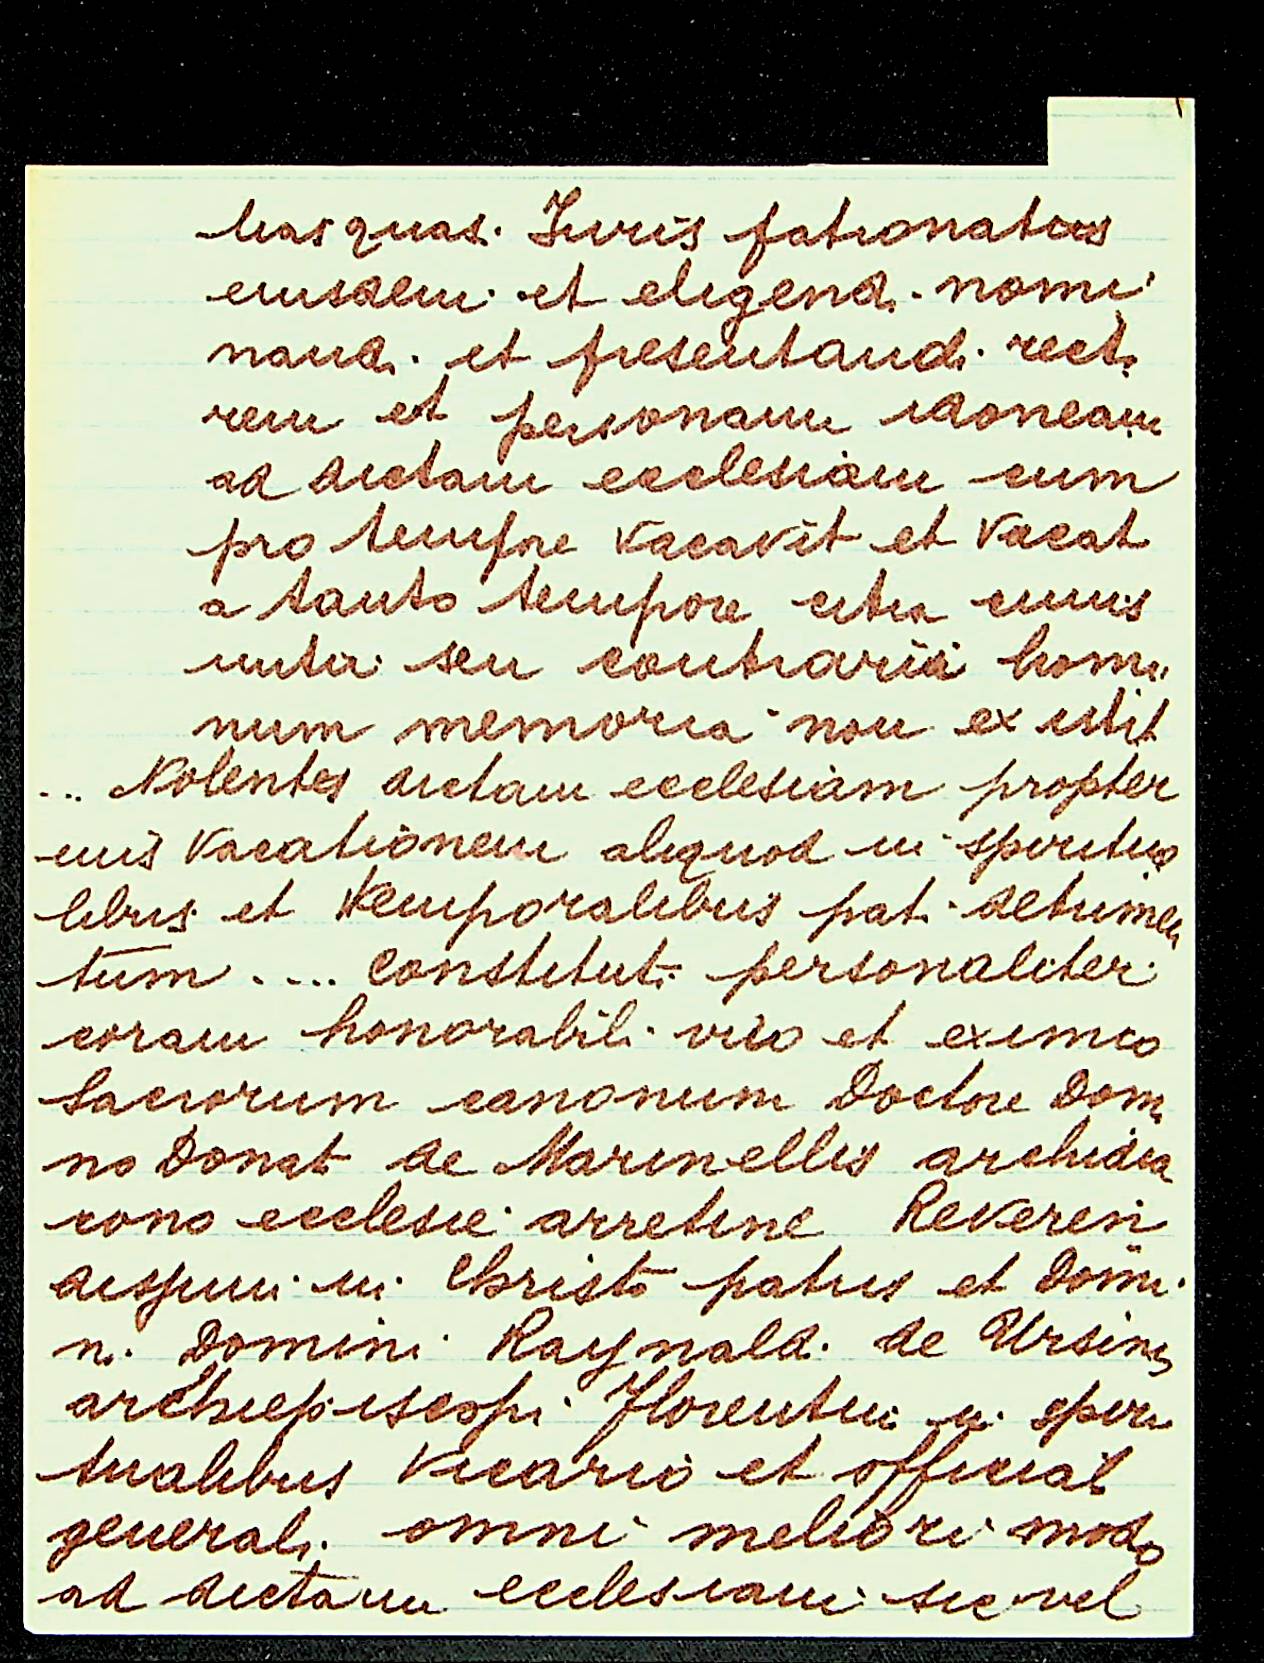 basquas. Juris patronatus
eiusdem et eligend. nomi
nand. et presentand. recto
rem et personam idoneam
ad dictam ecclesiam cum
pro tempore vacavit et vacat
a tanto tempore citra cuius
initii seu contrarii homi
num memoria non exstitit
... Nolentes dictam ecclesiam propter
eius vacationem aliquod in spiritua
libus et temporalibus pati detrimen
tum .... Constituti personaliter
coram honorabili viro et eximio
Sacrorum canonum Doctore Domi
no Donato de Marinellis archidia
cono ecclesie arretine Reveren
dissimi in Christo patris et Domi
ni Domini Raynaldi de Ursinis
archiepiscopi Florentini in spiri
tualibus Vicario et officiali
generali omni meliori modo
ad dictam ecclesiam sic vel